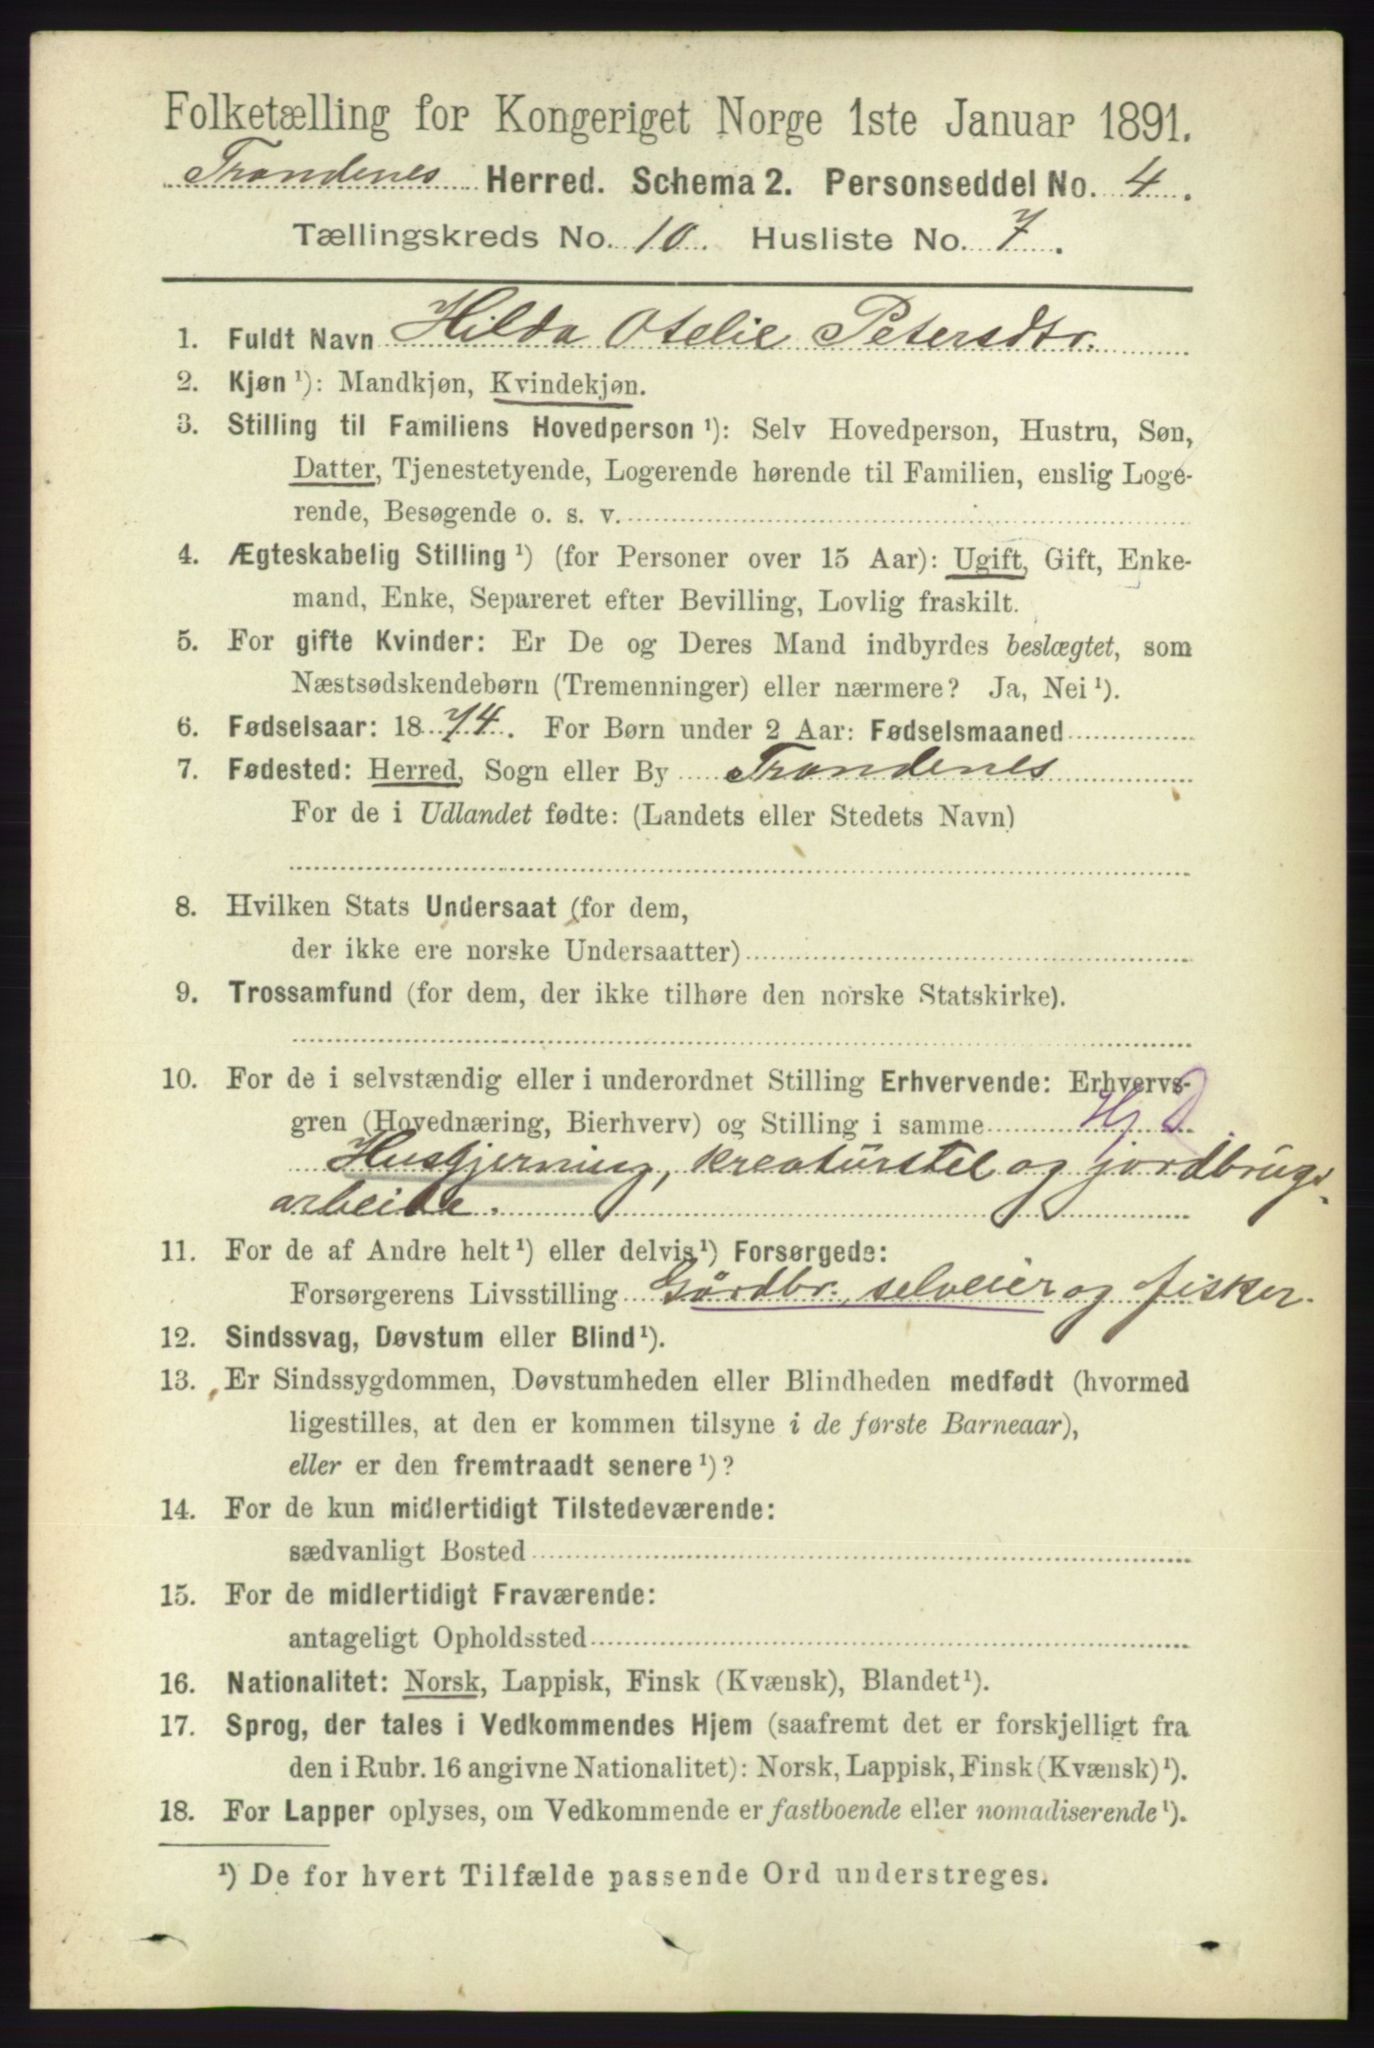 Folketælling for Kongeriget Norge 1ste Januar 1891.
Trondenes Herred. Schema 2. Personseddel No. 4.
Tællingskreds No. 10. Husliste No. 7.
1. Fuldt Navn Hilda Otelie Petersdtr.
2. Kjøn ¹): Mandkjøn, Kvindekjøn.
3. Stilling til Familiens Hovedperson ¹): Selv Hovedperson, Hustru, Søn,
Datter, Tjenestetyende, Logerende hørende til Familien, enslig Loge-
rende, Besøgende o. s. v.
4. Ægteskabelig Stilling ¹) (for Personer over 15 Aar): Ugift, Gift, Enke-
mand, Enke, Separeret efter Bevilling, Lovlig fraskilt.
5. For gifte Kvinder: Er De og Deres Mand indbyrdes beslægtet, som
Næstsødskendebørn (Tremenninger) eller nærmere? Ja, Nei ¹).
6. Fødselsaar: 1874. For Børn under 2 Aar: Fødselsmaaned
7. Fødested: Herred, Sogn eller By Trondenes
For de i Udlandet fødte: (Landets eller Stedets Navn)
8. Hvilken Stats Undersaat (for dem,
der ikke ere norske Undersaatter)
9. Trossamfund (for dem, der ikke tilhøre den norske Statskirke).
10. For de i selvstændig eller i underordnet Stilling Erhvervende: Erhvervs-
gren (Hovednæring, Bierhverv) og Stilling i samme
Husgjerning, kreaturstel og jordbrugs-
arbeide.
11. For de af Andre helt ¹) eller delvis ¹) Forsørgede:
Forsørgerens Livsstilling Gårdbr. selveier og fisker.
12. Sindssvag, Døvstum eller Blind ¹).
13. Er Sindssygdommen, Døvstumheden eller Blindheden medfødt (hvormed
ligestilles, at den er kommen tilsyne i de første Barneaar),
eller er den fremtraadt senere ¹)?
14. For de kun midlertidigt Tilstedeværende:
sædvanligt Bosted
15. For de midlertidigt Fraværende:
antageligt Opholdssted
16. Nationalitet: Norsk, Lappisk, Finsk (Kvænsk), Blandet ¹).
17. Sprog, der tales i Vedkommendes Hjem (saafremt det er forskjelligt fra
den i Rubr. 16 angivne Nationalitet): Norsk, Lappisk, Finsk (Kvænsk) ¹).
18. For Lapper oplyses, om Vedkommende er fastboende eller nomadiserende ¹).
¹) De for hvert Tilfælde passende Ord understreges.